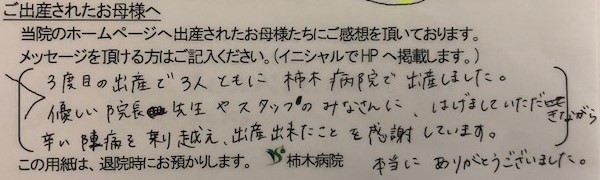 ご出産されたお母様へ
当院のホームページへ出産されたお母様たちにご感想を頂いております。
メッセージを頂ける方はご記入ください。(イニシャルでHPへ掲載します。)
3度目の出産で3人ともに柿木病院で出産しました。
優しい院長先生やスタッフのみなさんに、はげましていただきながら
辛い陣痛を乗り越え、出産出来たことを感謝しています。
この用紙は、退院時にお預かりします。 柿木病院 本当にありがとうございました。